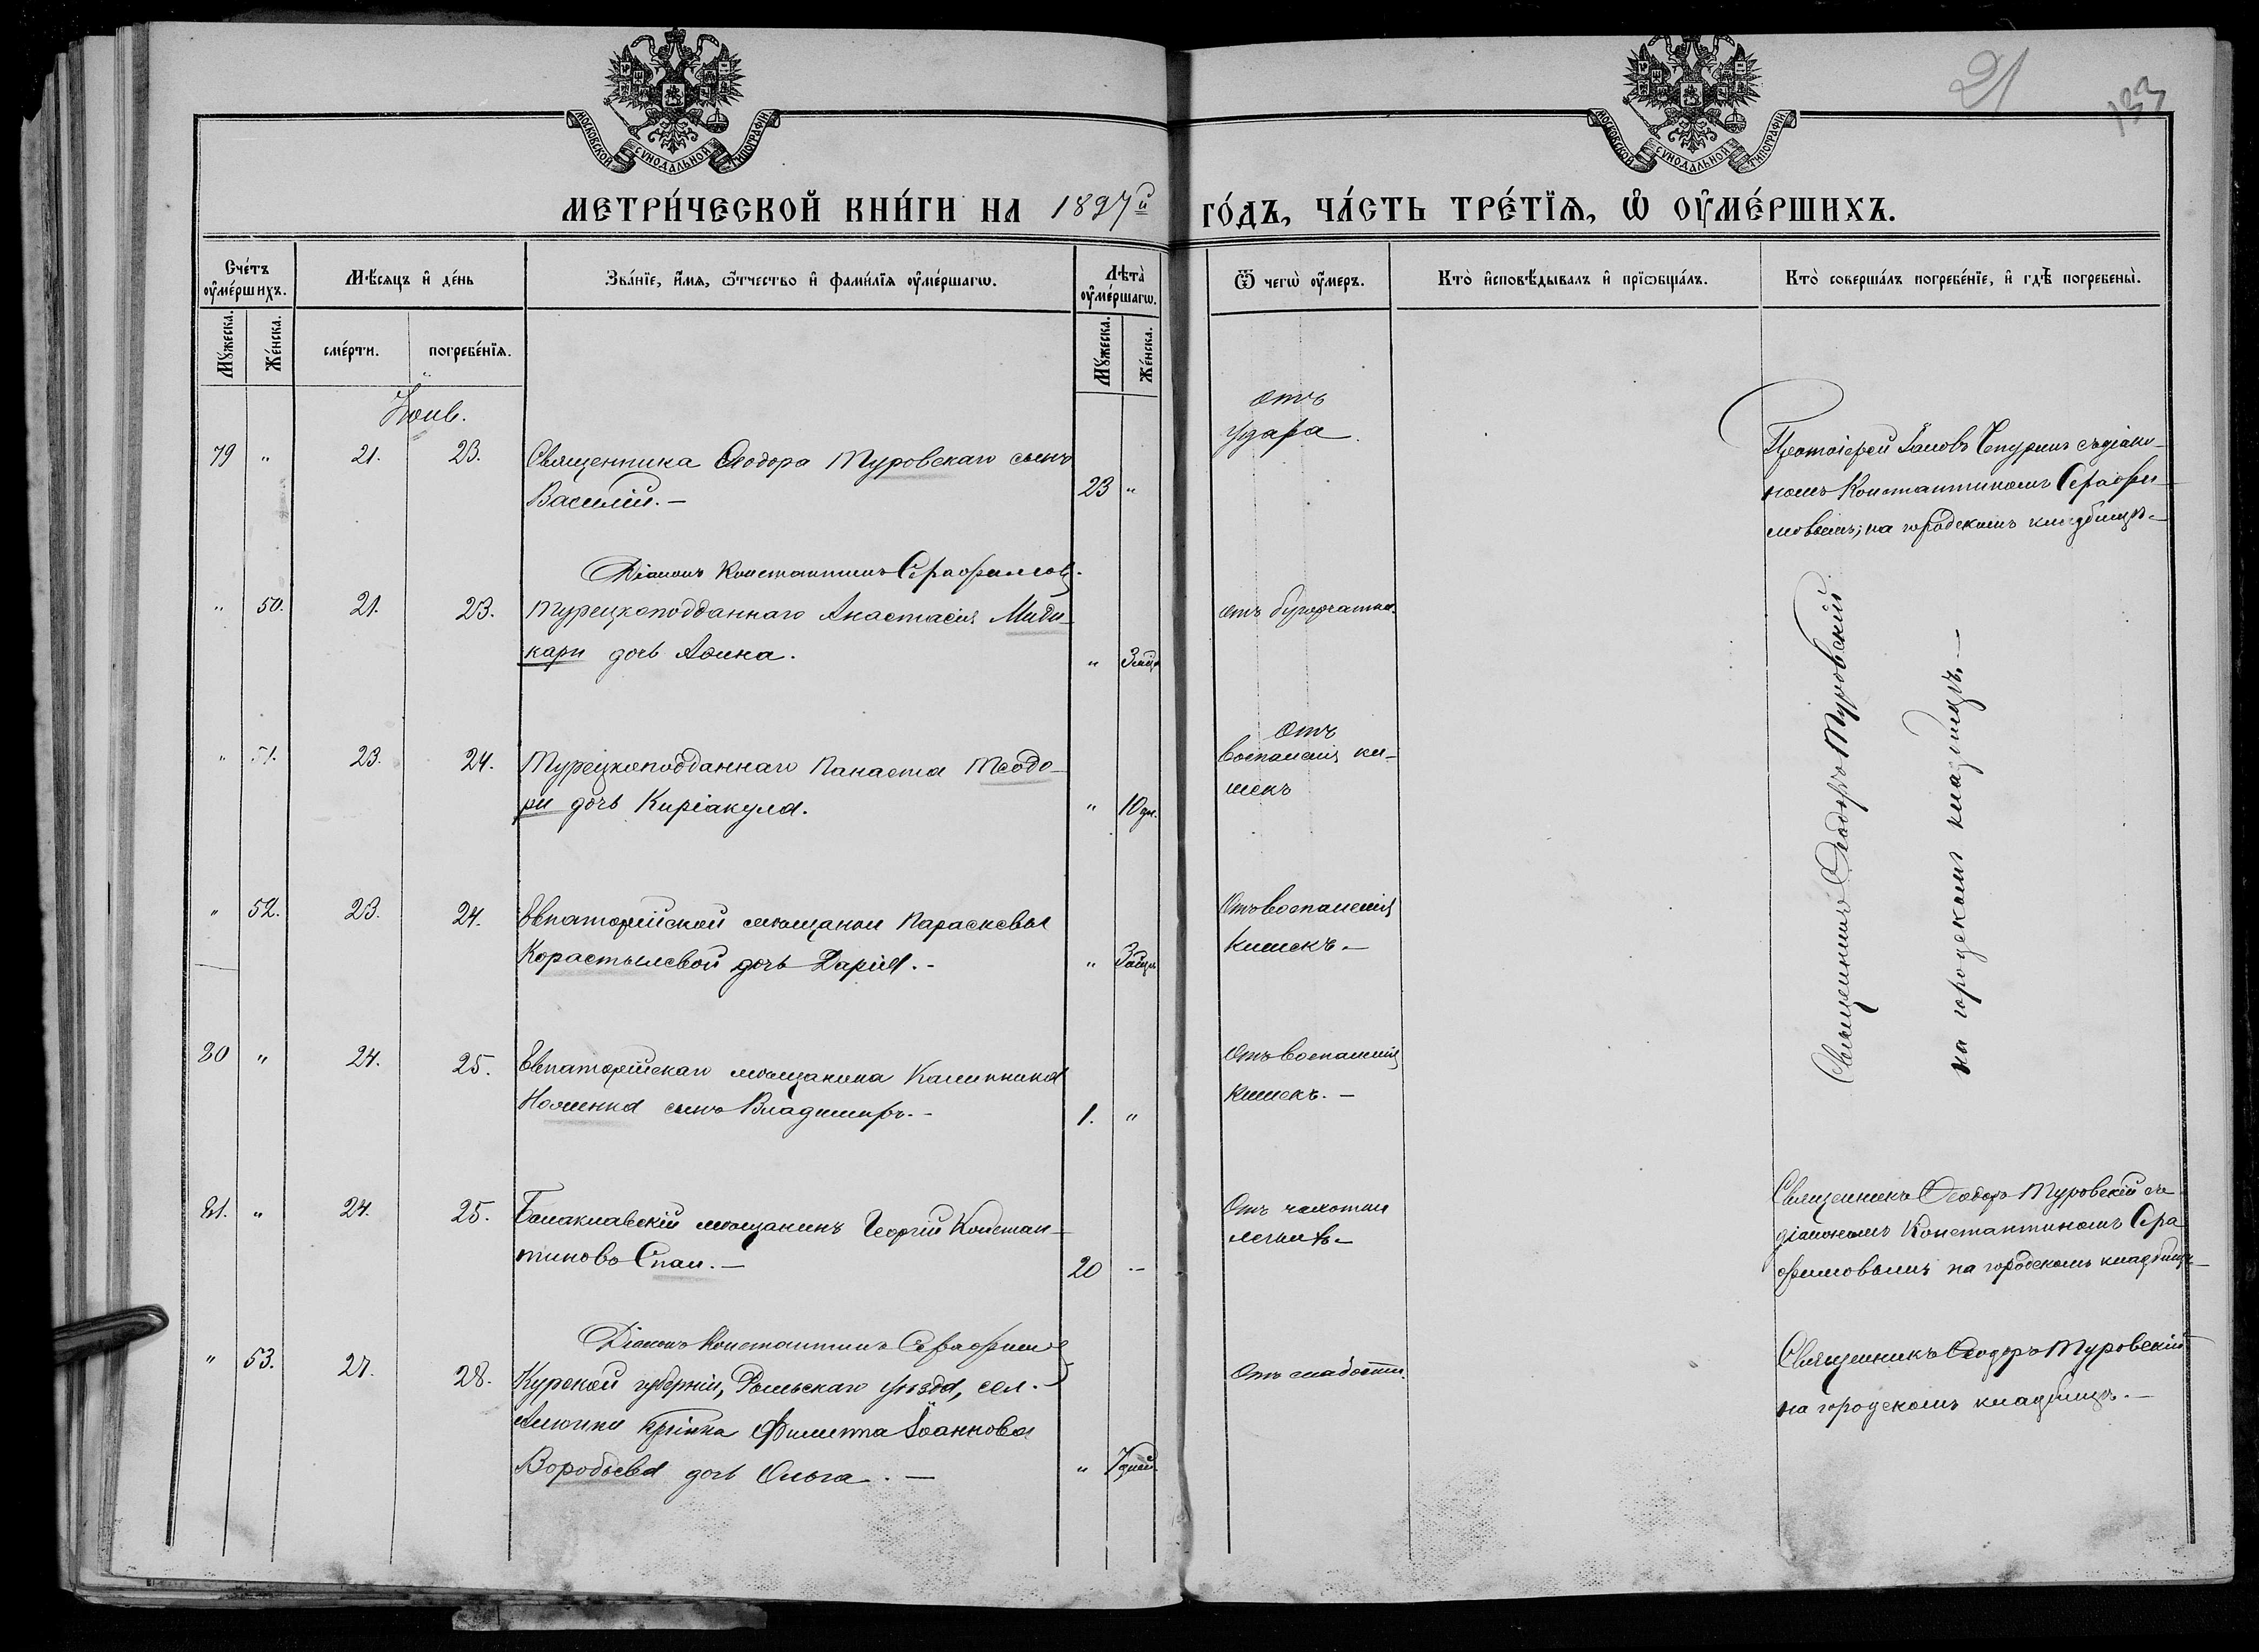 МОСКОВСКОЙ СѴНОДАЛЬНОЙ ТИПОГРАФІИ
МОСКОВСКОЙ СѴНОДАЛЬНОЙ ТИПОГРАФІИ
21
133
МЕТРИ́ЧЕСКОЙ КНИ́ГИ НА 1897й ГО́ДЪ, ЧА́СТЬ ТРЕ́ТЇѦ, Ѡ ОУ҆МЕ́РШИХЪ.
Сче́тъ оу҆ме́ршихъ.
Мꙋ́жеска.
Же́нска.
Мѣ́сяцъ и҆ де́нь
сме́рти.
погребе́нїѧ.
Зва́нїе, и҆́мѧ, ѻ҆́тчество и҆ фами́лїѧ оу҆ме́ршагѡ.
Лѣта̀ оу҆ме́ршагѡ.
Мꙋ́жеска.
Же́нска.
Ѿ чегѡ̀ оу҆́меръ.
Кто̀ и҆сповѣ́дывалъ и҆ прїѡбща́лъ.
Кто̀ соверша́лъ погребе́нїе, и҆ гдѣ̀ погребены̀.
Іюнь.
79 " 21. 23. Священника Ѳеодора Туровскаго сынъ
Василій.— 23 "
Отъ
удара.
Протоіерей Іаковъ Чепуринъ съ діако-
номъ Константиномъ Серафи-
мовымъ; на городскомъ кладбищѣ.—
Діаконъ Константинъ Серафимовъ.
" 50. 21. 23. Турецкоподданнаго Анастасія Миди-
кари дочь Аѳина. " 3 мѣс.
отъ бугорчатки.
" 51. 23. 24. Турецкоподданнаго Панаета Теодо-
ри дочь Киріакула. " 10 дн.
Отъ
воспаленія ки-
шекъ
" 52. 23. 24. Евпаторійской мѣщанки Параскевы
Корастылевой дочь Дарія.-
Отъ воспаленія
кишекъ.—
80 " 24. 25. Евпаторійскаго мѣщанина Калинника
сынъ Владимиръ.- 1. "
Отъ воспаленія
кишекъ.—
Священникъ Ѳеодоръ Туровскій
на городскомъ кладбищѣ.—
81. " 24. 25. Балаклавскій мѣщанинъ Георгій Констан-
тиновъ Спаи.— 20 "
Отъ чахотки
легкихъ.—
Священникъ Ѳеодоръ Туровскій съ
діакономъ Константиномъ Сера-
фимовымъ на городскомъ кладбищѣ—
Діаконъ Константинъ Серафимовъ
" 53. 27. 28. Курской губерніи, Рыльскаго уѣзда, сел.
кр-нина Филиппа Іоаннова
Воробьева дочь Ольга.— " 7 дней.
Отъ слабости.
Священникъ Ѳеодоръ Туровскій
на городскомъ кладбищѣ.—